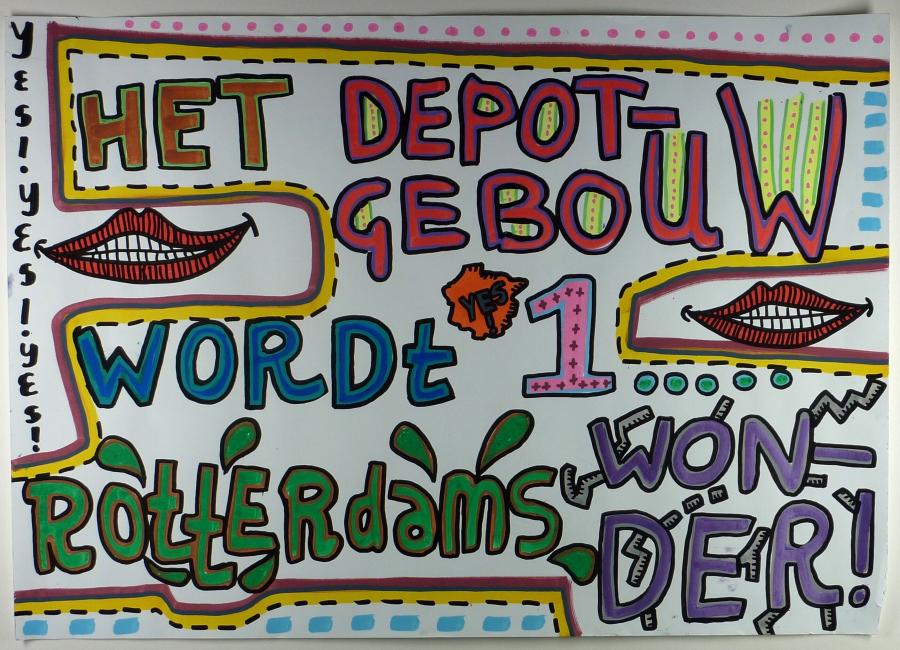 YES! YES! YES!
HET DEPOT-
GEBOUW
YES
WORDt 1
ROttERdamS
WON-
DER!